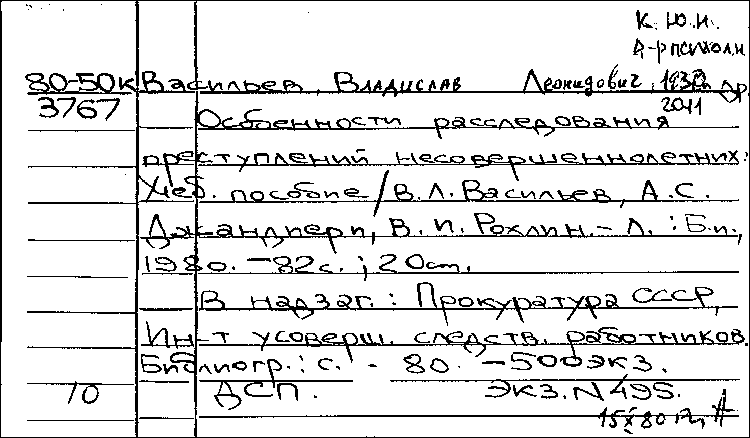 К. Ю. Н.
Д-р психол. н
80-50к Васильев, Владислав Леонидович, 193
3767 2011
Особенности расследования
преступлений несовершеннолетних:
Учеб. пособие / В. Л. Васильев, А. С.
Джандиери, В. И. Рохлин. - Л. : Б.и.,
1980. - 82 с. ; 20 см.
В надзаг. : Прокуратура СССР,
Ин-т усоверш. следств. работников.
Библиогр. : с. - 80. - 500 экз.
10 ДСП. Экз. N 495.